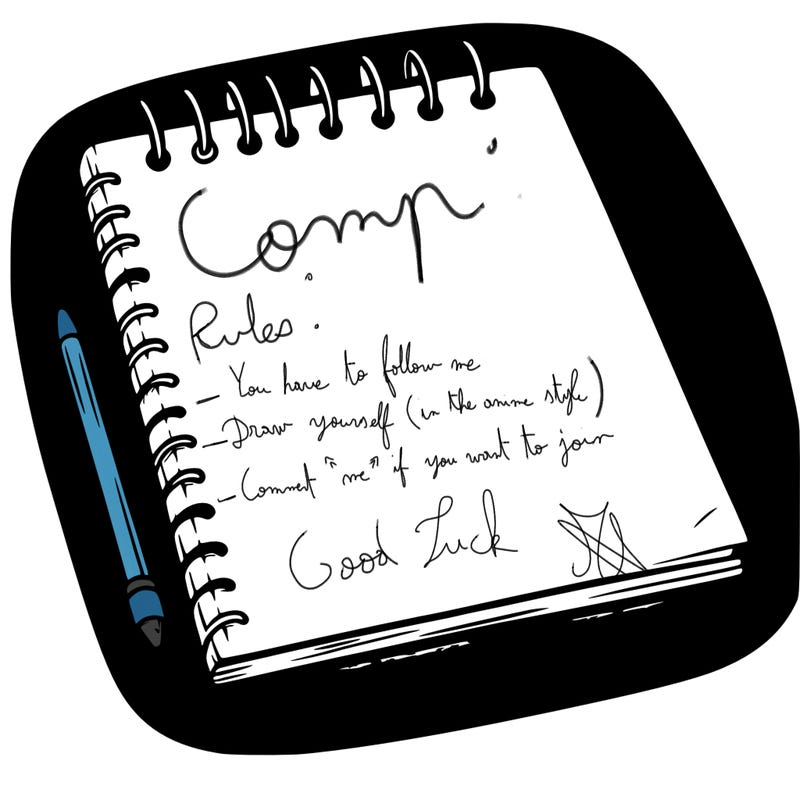 Comp
Rules:
- You have to follow me
- Draw yourself (in the anime style)
- Comment "me" if you want to join
Good Luck